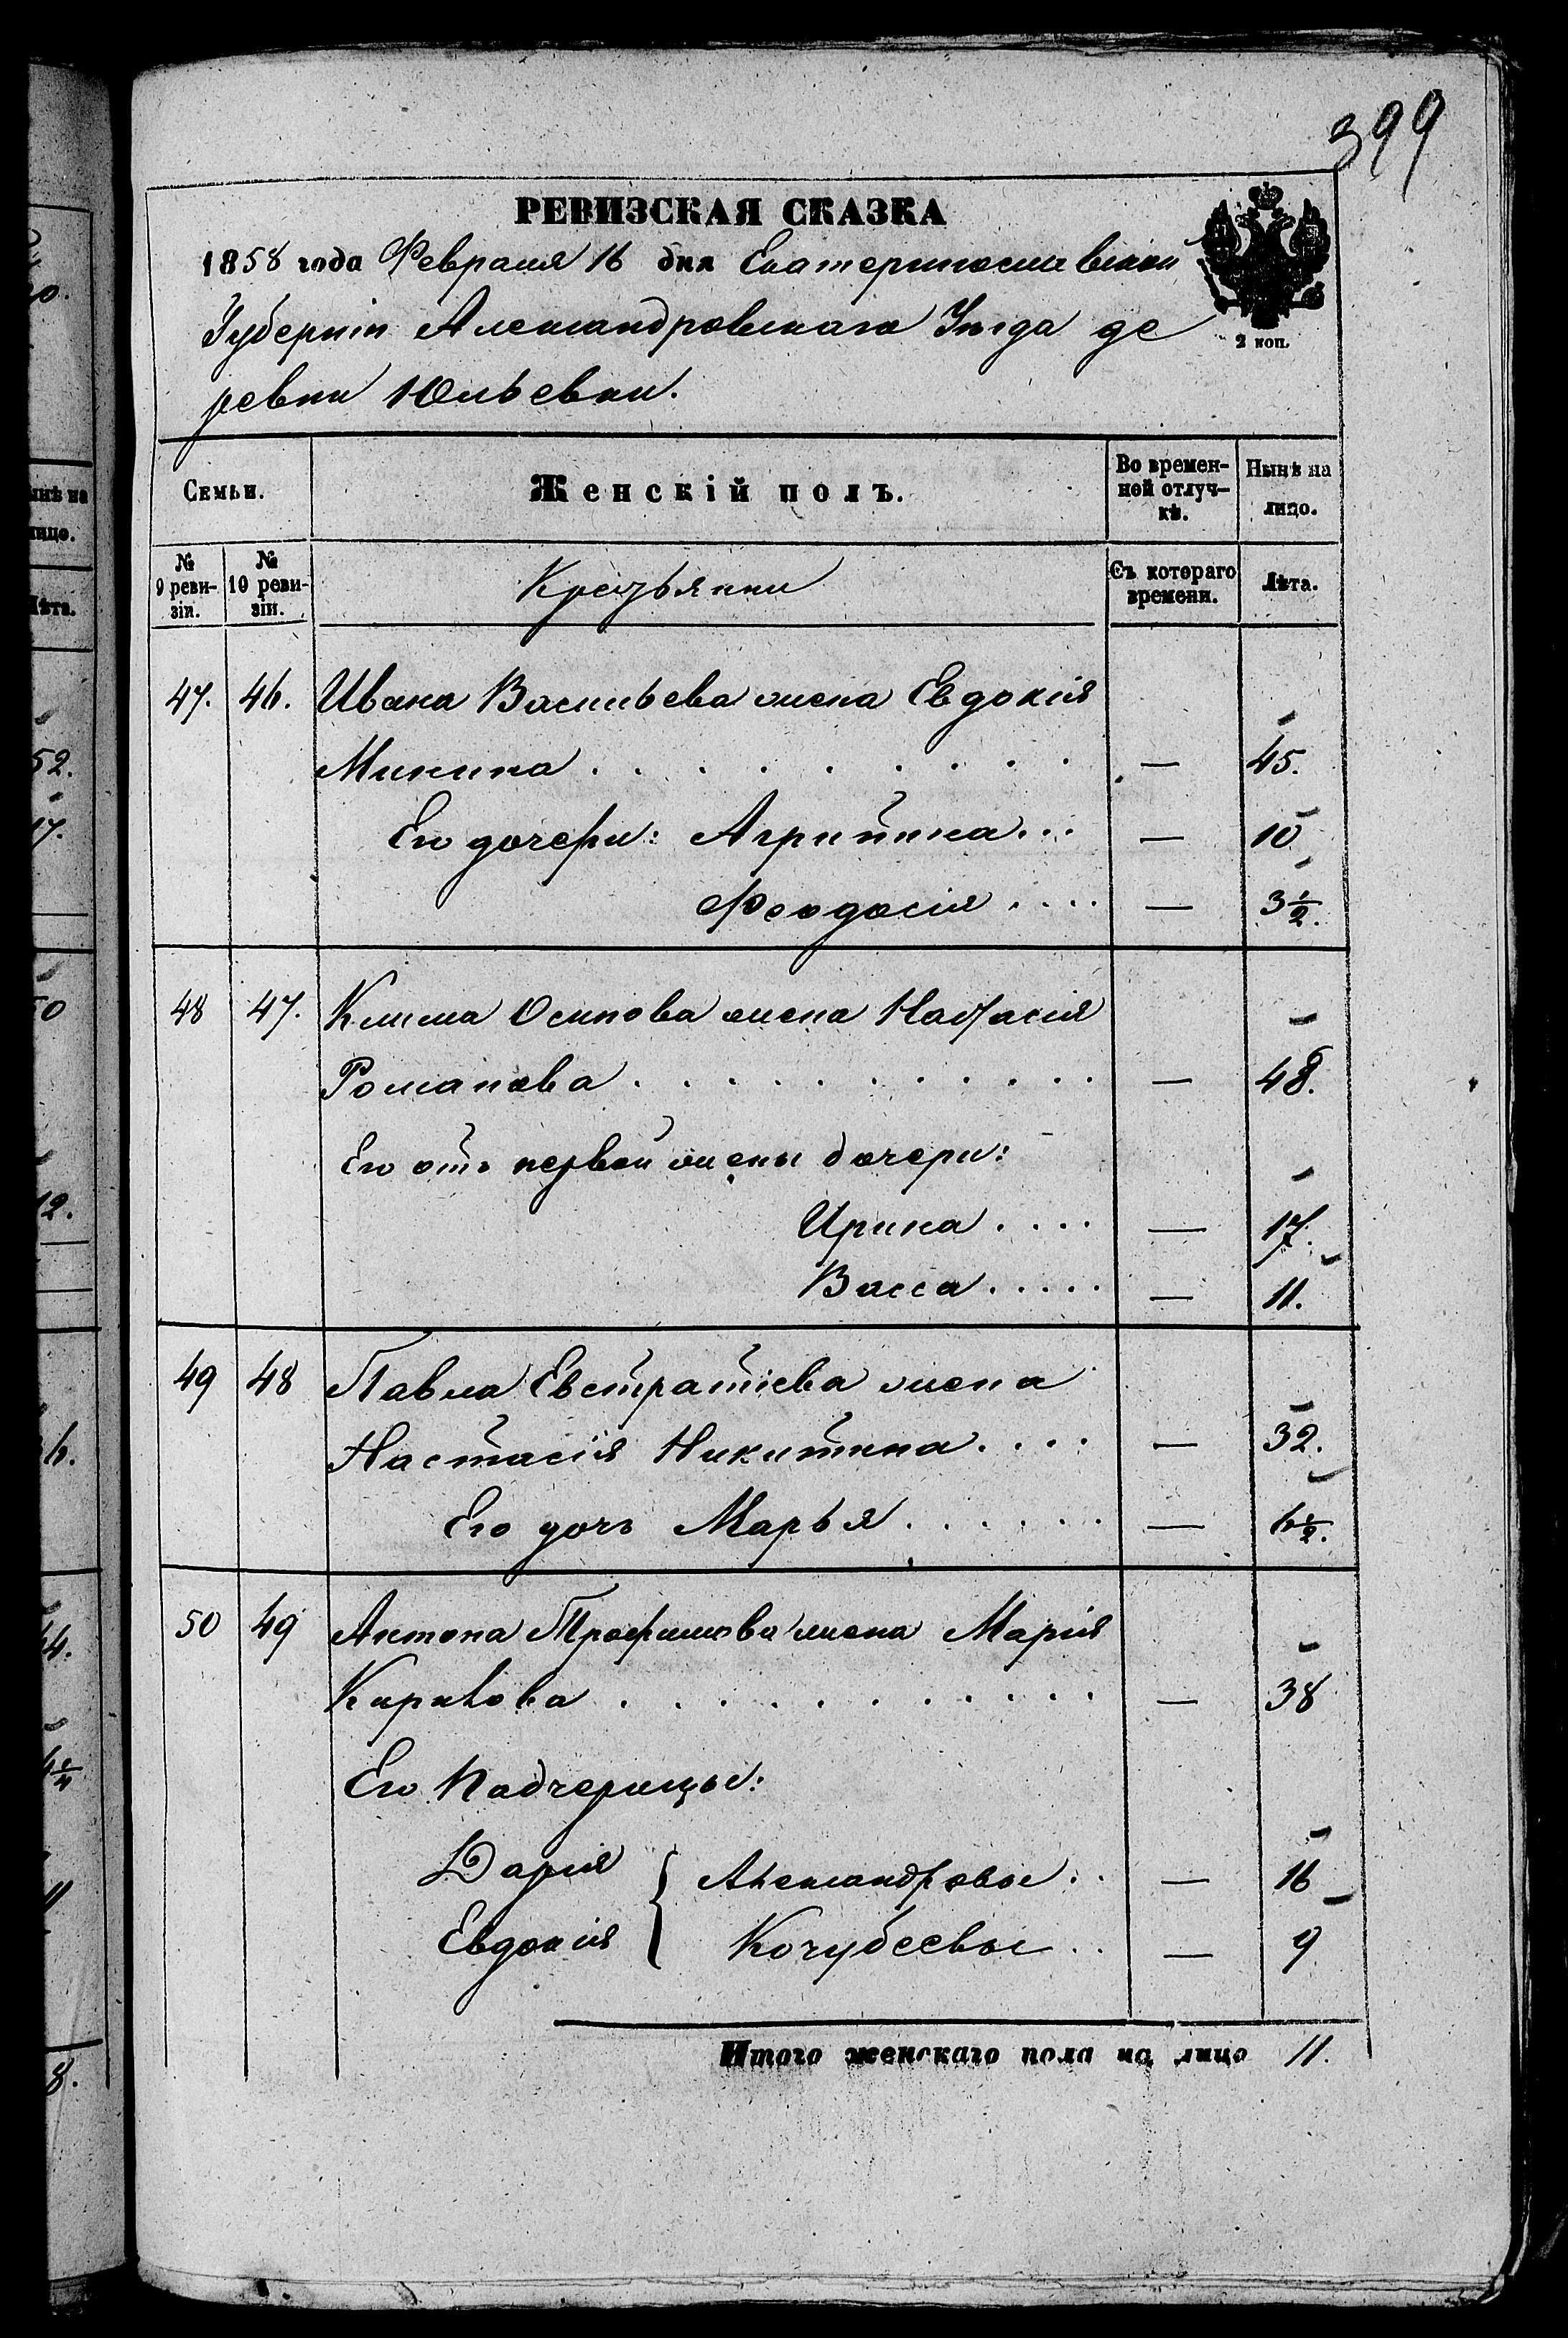 399
РЕВИЗСКАЯ СКАЗКА
1858 года Февраля 16 дня Екатеринославской
Губерніи Александровскаго Уѣзда де
ревни Юльевки.
2 коп.
Семьи.
Женскій полъ.
Во времен-
ной отлуч-
кѣ.
Нынѣ на
лицо.
№
9 реви-
зіи.
№
10 реви-
зіи.
Крестьянки
Съ котораго
времени.
Лѣта.
47. 46. Ивана Васильева жена Евдокія
Минина . . . . . . . . . — 45.
Его дочери: Агрипина... — 10
Феодосія .... — 3 1/2.
48 47. Клима Осипова жена Настасія
Романова . . . . . . . . . . . — 48.
Его отъ первой жены дочери:
Ирина .... — 17.
Васса ..... — 11.
49 48 Павла Евстратіева жена
Настасія Никитина .... — 32.
Его дочь Марья ...... — 6 1/2.
50 49 Антона Трофимова жена Марія
Кирилова . . . . . . . . . . — 38
Его Падчерицы:
Дарія { Александровы .. — 16
Евдокія Кочубеевы .. — 9
Итого женскаго пола на лицо 11.